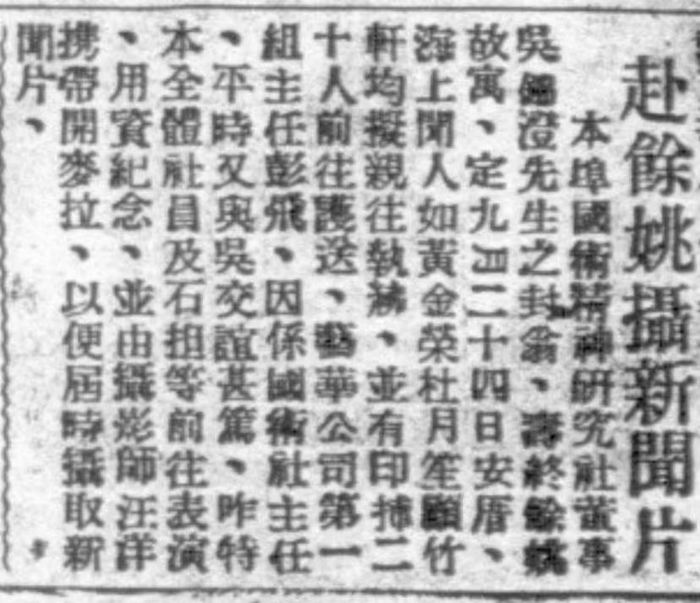 赴餘姚攝新聞片
本埠國術精神研究社董事
吳澄先生之封翁、壽終餘姚
故寓、定九月二十四日安厝、
海上聞人如黃金榮杜月笙顧竹
軒均擬親往執紼、並有印捕二
十人前往護送、藝華公司第一
組主任彭飛、因係國術社主任
、平時又與吳交誼甚篤、昨特
本全體社員及石担等前往表演
、用資紀念、並由攝影師汪洋
携帶開麥拉、以便屆時攝取新
聞片、